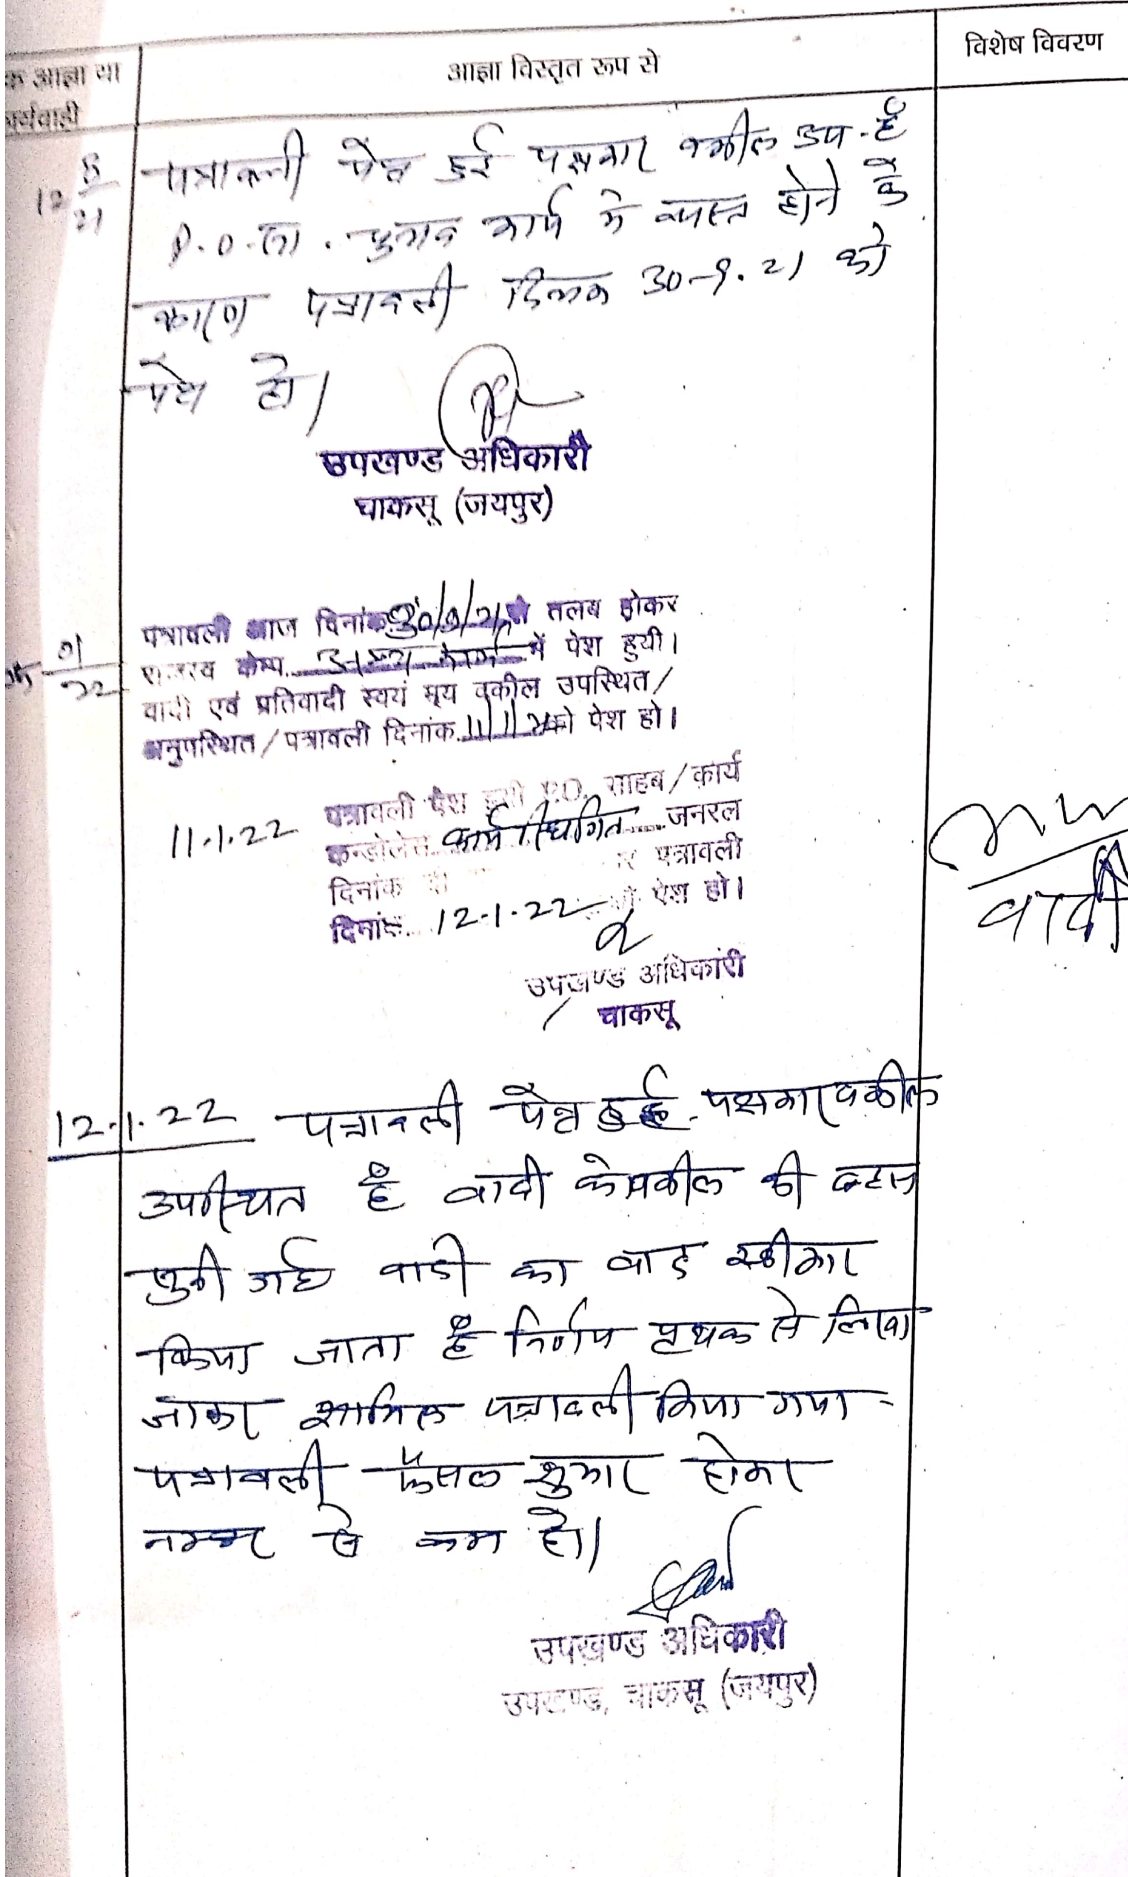 क आज्ञा या
र्यवाही
आज्ञा विस्तृत रूप से
विशेष विवरण
12 8/21
पत्रावली पेश हुई पक्षकार वकील उप. है
P.O. सा. चुनाव कार्य मे व्यस्त होने के
कारण पत्रावली दिनांक 30-9-21 को
पेश हो।
उपखण्ड अधिकारी
चाकसू (जयपुर)
पत्रावली आज दिनांक 30/9/21 को तलब होकर
राजस्व केम्प में पेश हुयी।
01/22
वादी एवं प्रतिवादी स्वयं मय वकील उपस्थित/
अनुपस्थित/पत्रावली दिनांक 11/1/22 को पेश हो।
पत्रावली पेश हुयी P.O. साहब/कार्य
11.1.22
कन्डोलेंस कार्य स्थगित जनरल
दिनांक पत्रावली
दिनांक 12.1.22 पेश हो।
उपखण्ड अधिकारी
चाकसू
वादी
12.1.22 पत्रावली पेश हुई पक्षकार वकील
उपस्थित है वादी के वकील की बहस
सुनी गई वादी का वाद स्वीकार
किया जाता है निर्णय पृथक से लिखा
जाकर शामिल पत्रावली किया गया -
पत्रावली फैसल शुमार होकर
नम्बर से कम हो।
उपखण्ड अधिकारी
उपखण्ड, चाकसू (जयपुर)